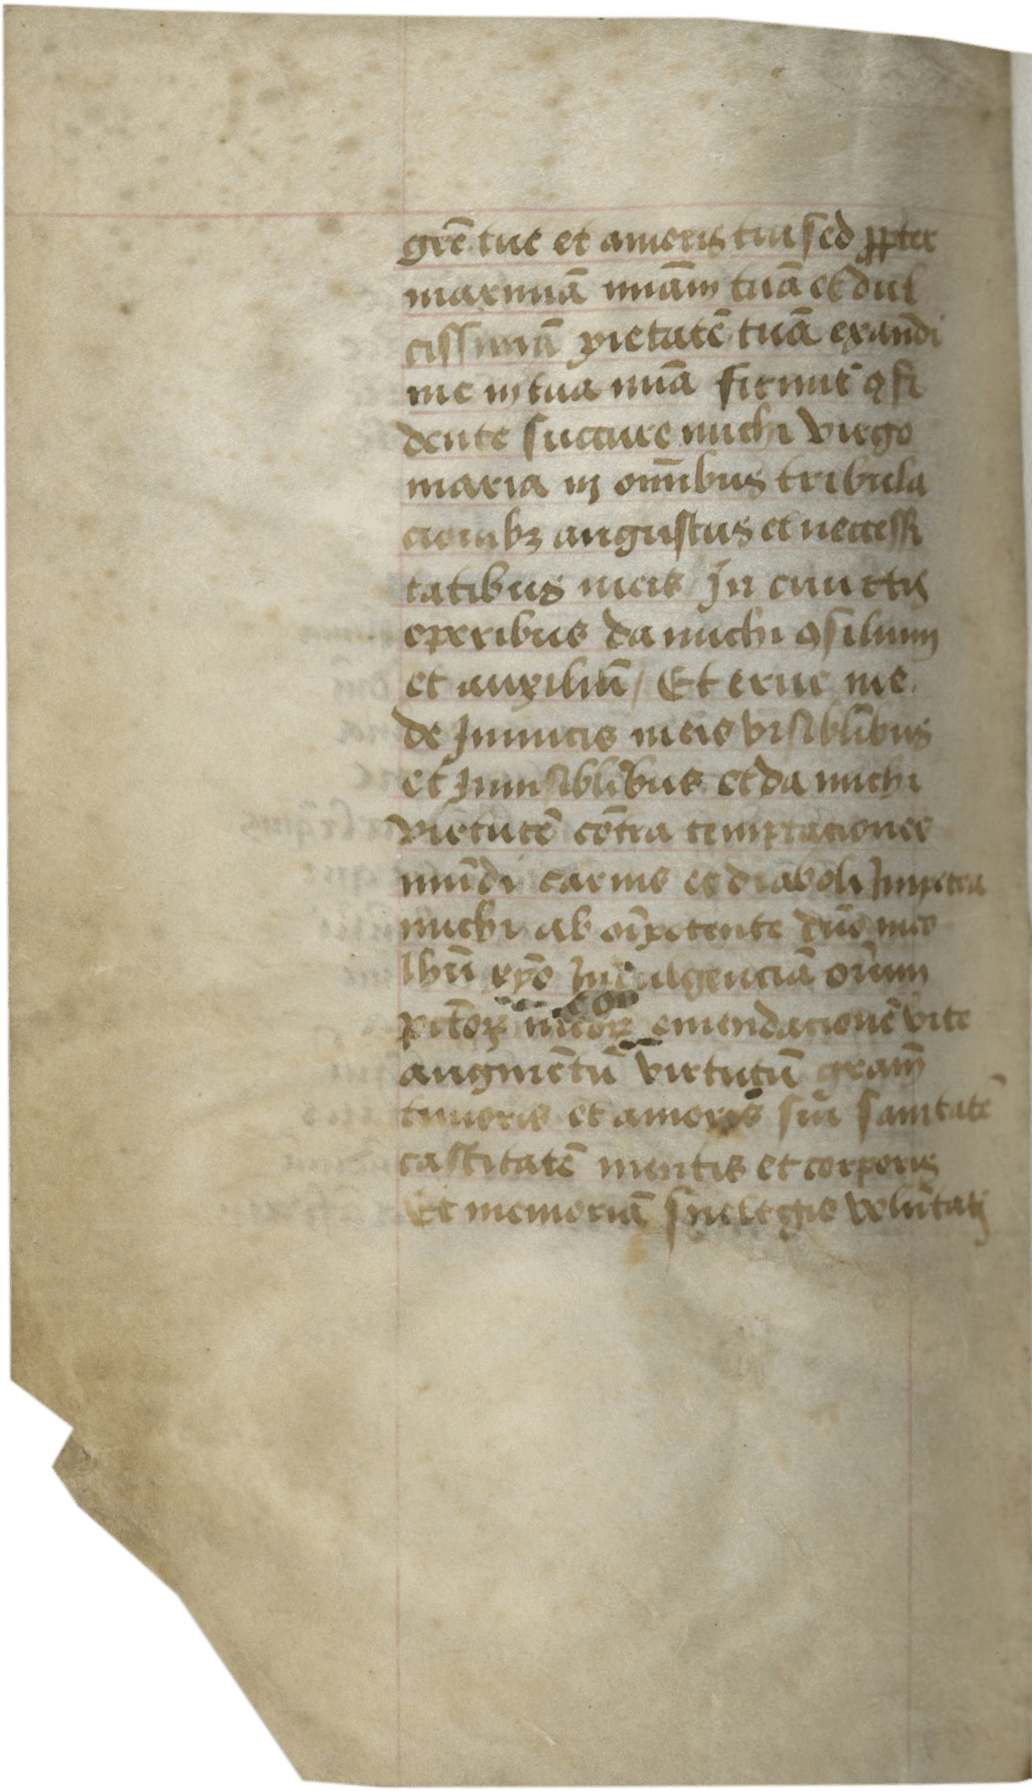 grē tue et amoris tui sed ꝓpter
maximā miām tuā et dul
cissimā pietatē tuā exaudi
me in tua miā firmit̄ ꝯfi
dente succure michi virgo
maria in om̄ibus tribula
cionibꝫ angustiis et necessi
tatibus meis / In cunctis
operibus da michi ꝯsilium
et auxiliū / Et erue me
de Inimicis meis visiblībus
et Inuisiblībus et da michi
virtutē cōtra temptaciones
mūdi carnis et diaboli Impetra
michi ab oīpotente dn̄o meo
Ihū xp̄o Indulgenciā om̄um
pctōꝝ meoꝝ emendacionē vite
augmētū virtutū grām
timoris et amoris sui sanitatē
castitatē mentis et corporis
Et memoriā sue legis volūtatis